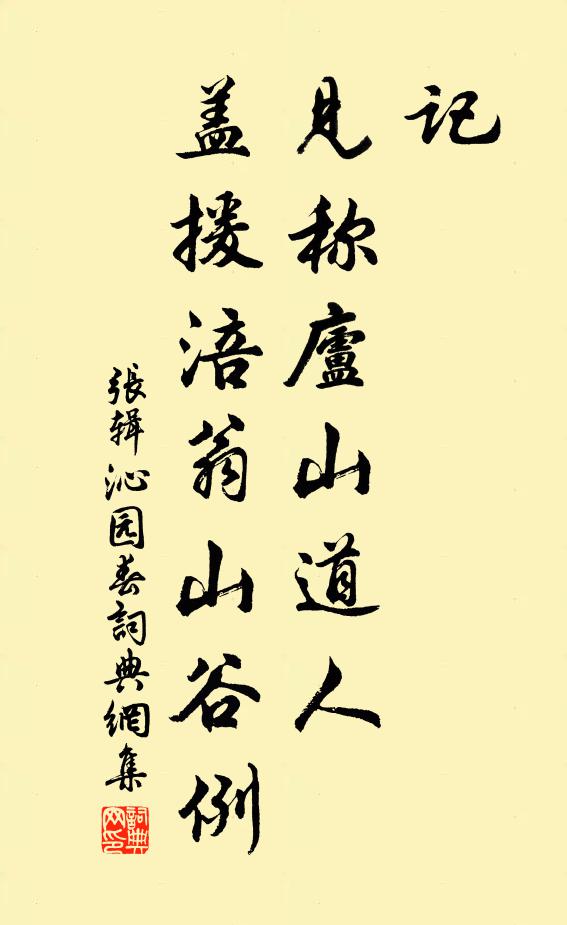 记
见称廬山道人
盖援涪翁山谷例
張辑沁园春詞典網集
詞典网印